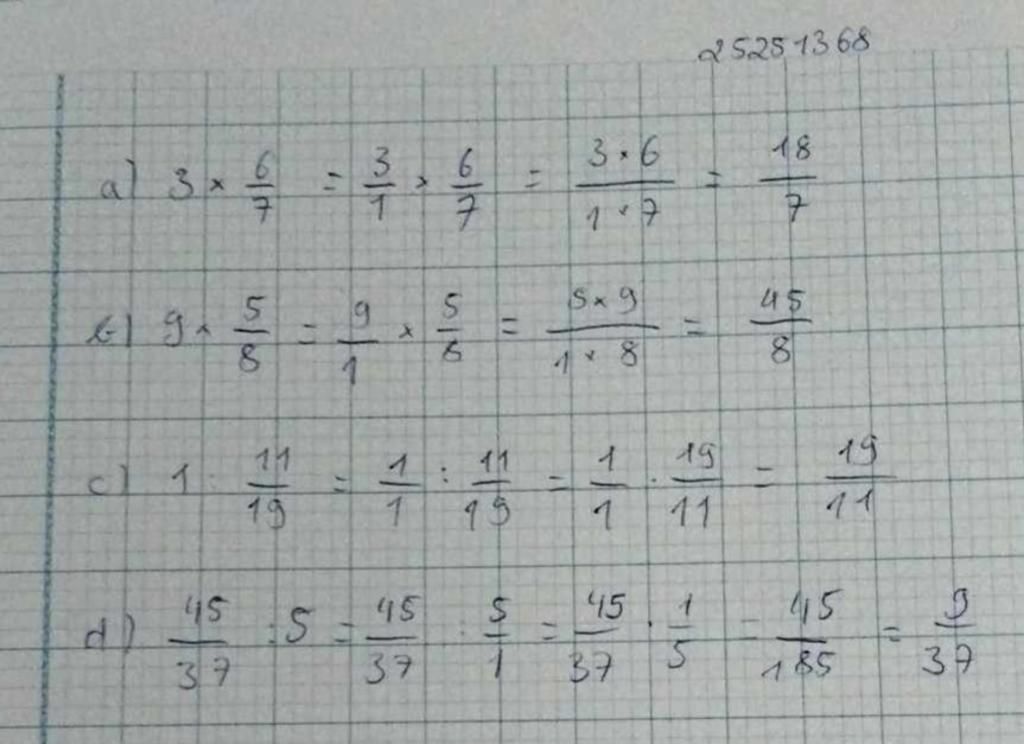 25251368
a) 3 × 6/7 = 3/1 × 6/7 = 3×6/1×7 = 18/7
b) 9 × 5/8 = 9/1 × 5/8 = 5×9/1×8 = 45/8
c) 1 : 11/19 = 1/1 : 11/19 = 1/1 · 19/11 = 19/11
d) 45/37 : 5 = 45/37 : 5/1 = 45/37 · 1/5 = 45/185 = 9/37